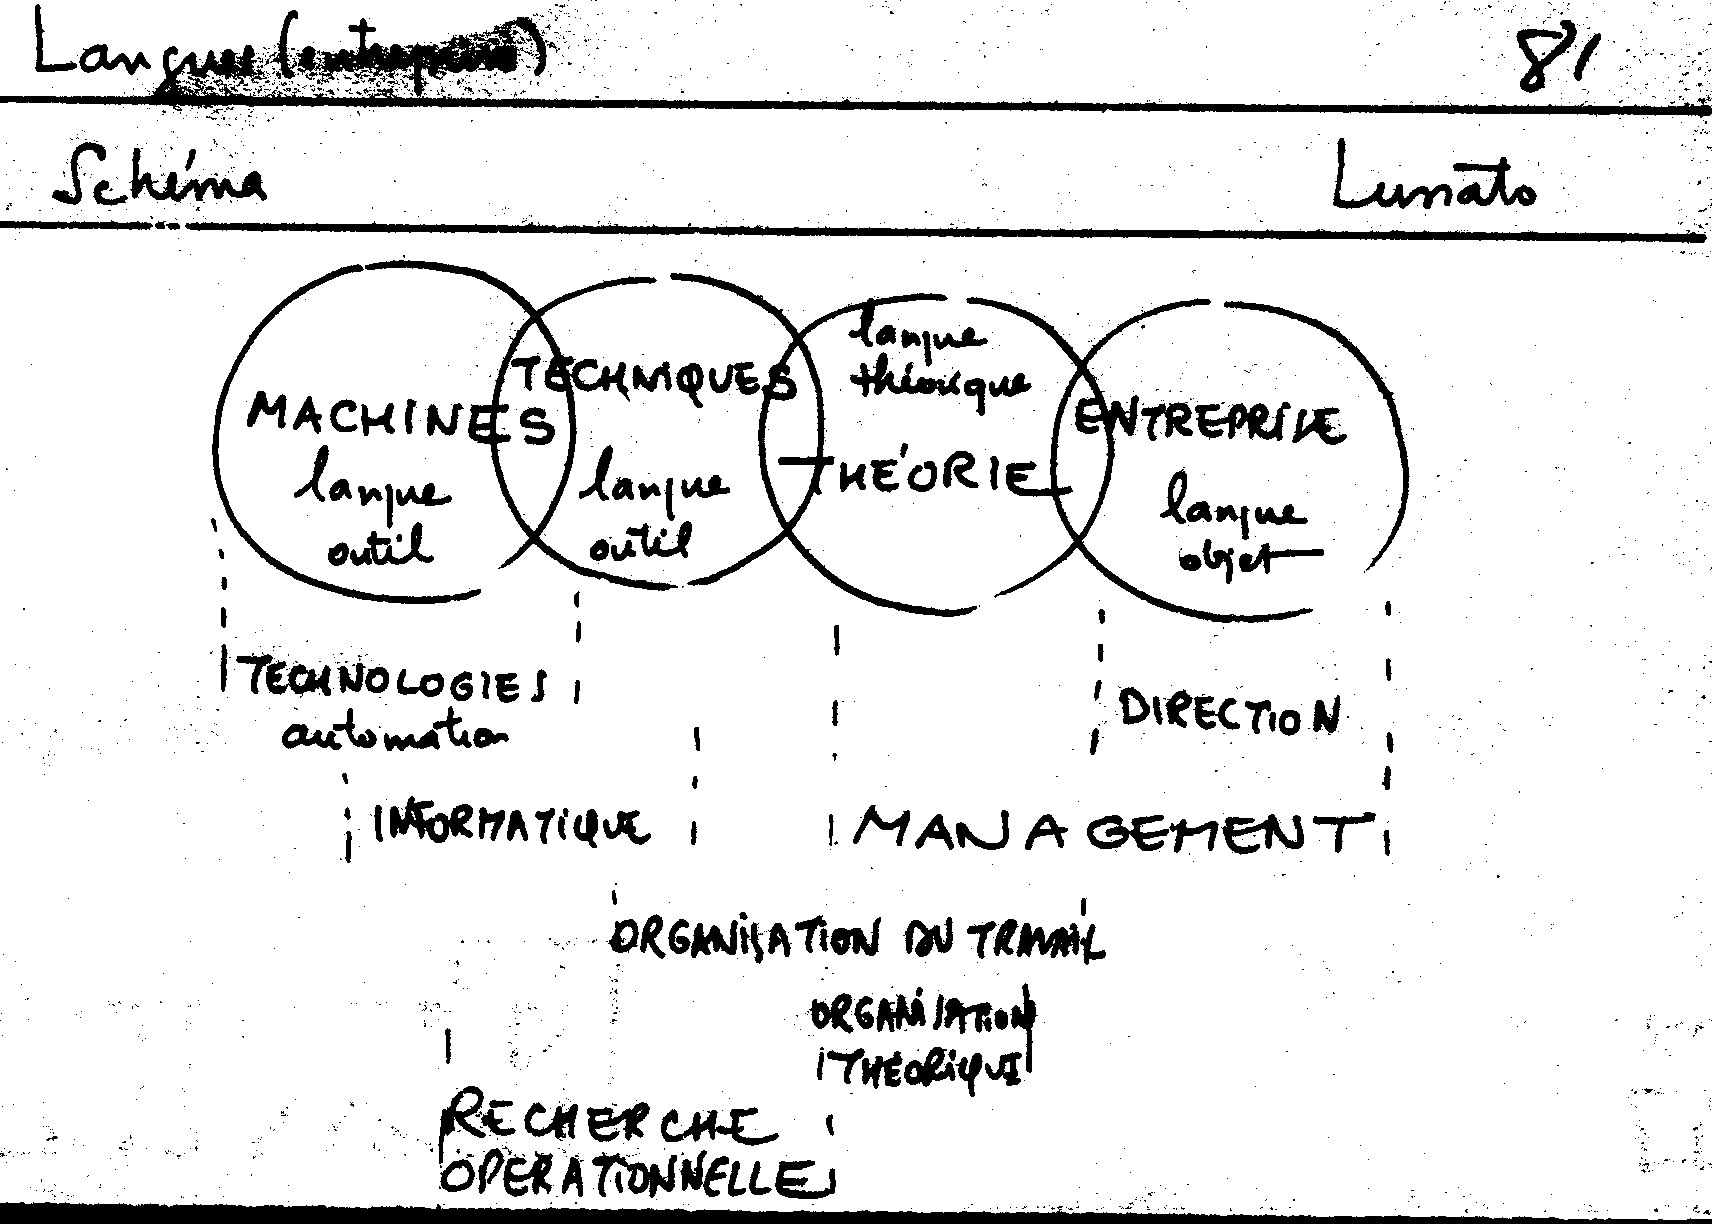 Langues (entreprise) 81
Schéma Lussato
MACHINES
langue
outil
TECHNIQUES
langue
outil
langue
théorique
THÉORIE
ENTREPRISE
langue
objet
TECHNOLOGIES
automation
DIRECTION
INFORMATIQUE
MANAGEMENT
ORGANISATION DU TRAVAIL
ORGANISATION
THEORIQUE
RECHERCHE
OPERATIONNELLE